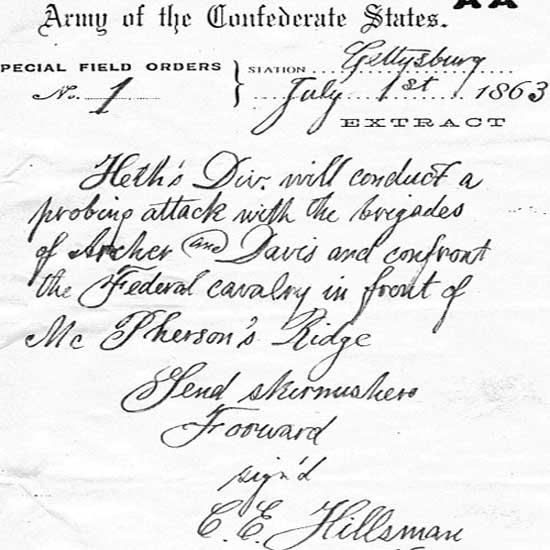 AA
Army of the Confederate States.
SPECIAL FIELD ORDERS } STATION Gettysburg
No. 1 July 1st 1863
EXTRACT
Heth's Div. will conduct a
probing attack with the brigades
of Archer and Davis and confront
the Federal cavalry in front of
Mc Pherson's Ridge
Send skirmushers
Foorward
sign'd
C. E. Hillsman